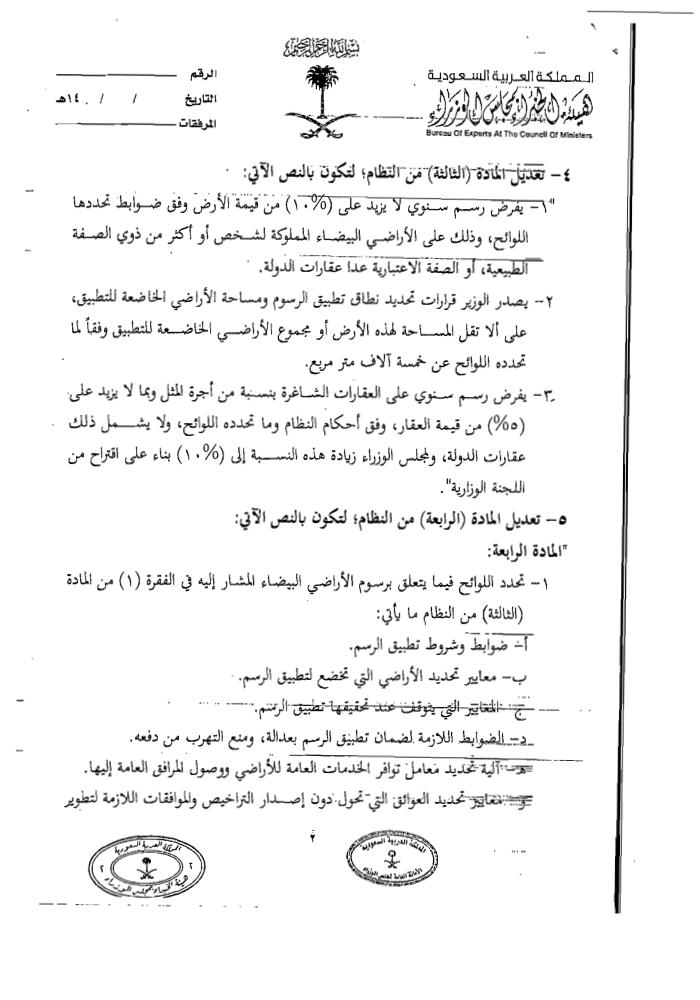 بسم الله الرحمن الرحيم
المملكة العربية السعودية
هيئة الخبراء بمجلس الوزراء
Bureau Of Experts At The Council Of Ministers
الرقم
التاريخ / / ١٤٠هـ
المرفقات
٤- تعديل المادة (الثالثة) من النظام؛ لتكون بالنص الآتي:
"١- يفرض رسم سنوي لا يزيد على (١٠%) من قيمة الأرض وفق ضوابط تحددها
اللوائح، وذلك على الأراضي البيضاء المملوكة لشخص أو أكثر من ذوي الصفة
الطبيعية، أو الصفة الاعتبارية عدا عقارات الدولة.
٢- يصدر الوزير قرارات تحديد نطاق تطبيق الرسوم ومساحة الأراضي الخاضعة للتطبيق،
على ألا تقل المساحة لهذه الأرض أو مجموع الأراضي الخاضعة للتطبيق وفقاً لما
تحدده اللوائح عن خمسة آلاف متر مربع.
٣- يفرض رسم سنوي على العقارات الشاغرة بنسبة من أجرة المثل وبما لا يزيد على
(٥%) من قيمة العقار، وفق أحكام النظام وما تحدده اللوائح، ولا يشمل ذلك
عقارات الدولة، ولمجلس الوزراء زيادة هذه النسبة إلى (١٠%) بناء على اقتراح من
اللجنة الوزارية".
٥- تعديل المادة (الرابعة) من النظام؛ لتكون بالنص الآتي:
"المادة الرابعة:
١- تحدد اللوائح فيما يتعلق برسوم الأراضي البيضاء المشار إليه في الفقرة (١) من المادة
(الثالثة) من النظام ما يأتي:
أ- ضوابط وشروط تطبيق الرسم.
ب- معايير تحديد الأراضي التي تخضع لتطبيق الرسم.
ج- المعايير التي يتوقف عند تحقيقها تطبيق الرسم.
د- الضوابط اللازمة لضمان تطبيق الرسم بعدالة، ومنع التهرب من دفعه.
هـ- آلية تحديد معامل توافر الخدمات العامة للأراضي ووصول المرافق العامة إليها.
و- معايير تحديد العوائق التي تحول دون إصدار التراخيص والموافقات اللازمة لتطوير
٢
المملكة العربية السعودية
الأمانة العامة لمجلس الوزراء
المملكة العربية السعودية
٢ ٢
هيئة الخبراء بمجلس الوزراء